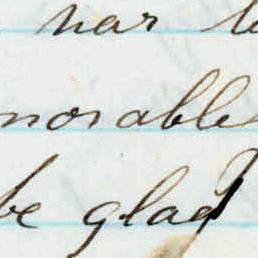 har
norable
be glad